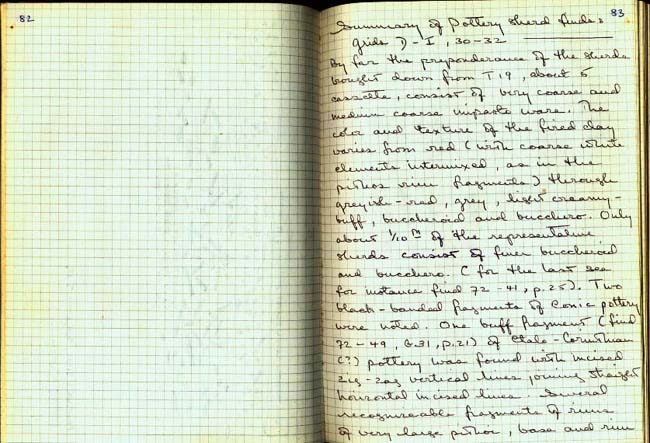 82
83
Summary of Pottery sherd finds:
grids D-I, 30-32
By far the preponderance of the sherds
brought down from T19, about 5
cassette, consist of very coarse and
medium coarse impasto ware. The
color and texture of the fired clay
varies from red (with coarse white
elements intermixed, as in the
pithos rim fragments) through
greyish-red, grey, light creamy-
buff, buccheroid and bucchero. Only
about 1/10th of the representative
sherds consist of finer buccheroid
and bucchero. (for the last see
for instance find 72-41, p.25). Two
black-banded fragments of Ionic pottery
were noted. One buff fragment (find
72-49, G.31, p.21) of Etalo-Corinthian
(?) pottery was found with incised
zig-zag vertical lines joining straight
horizontal incised lines. Several
recognizeable fragments of rims
of very large pithoi, base and rim